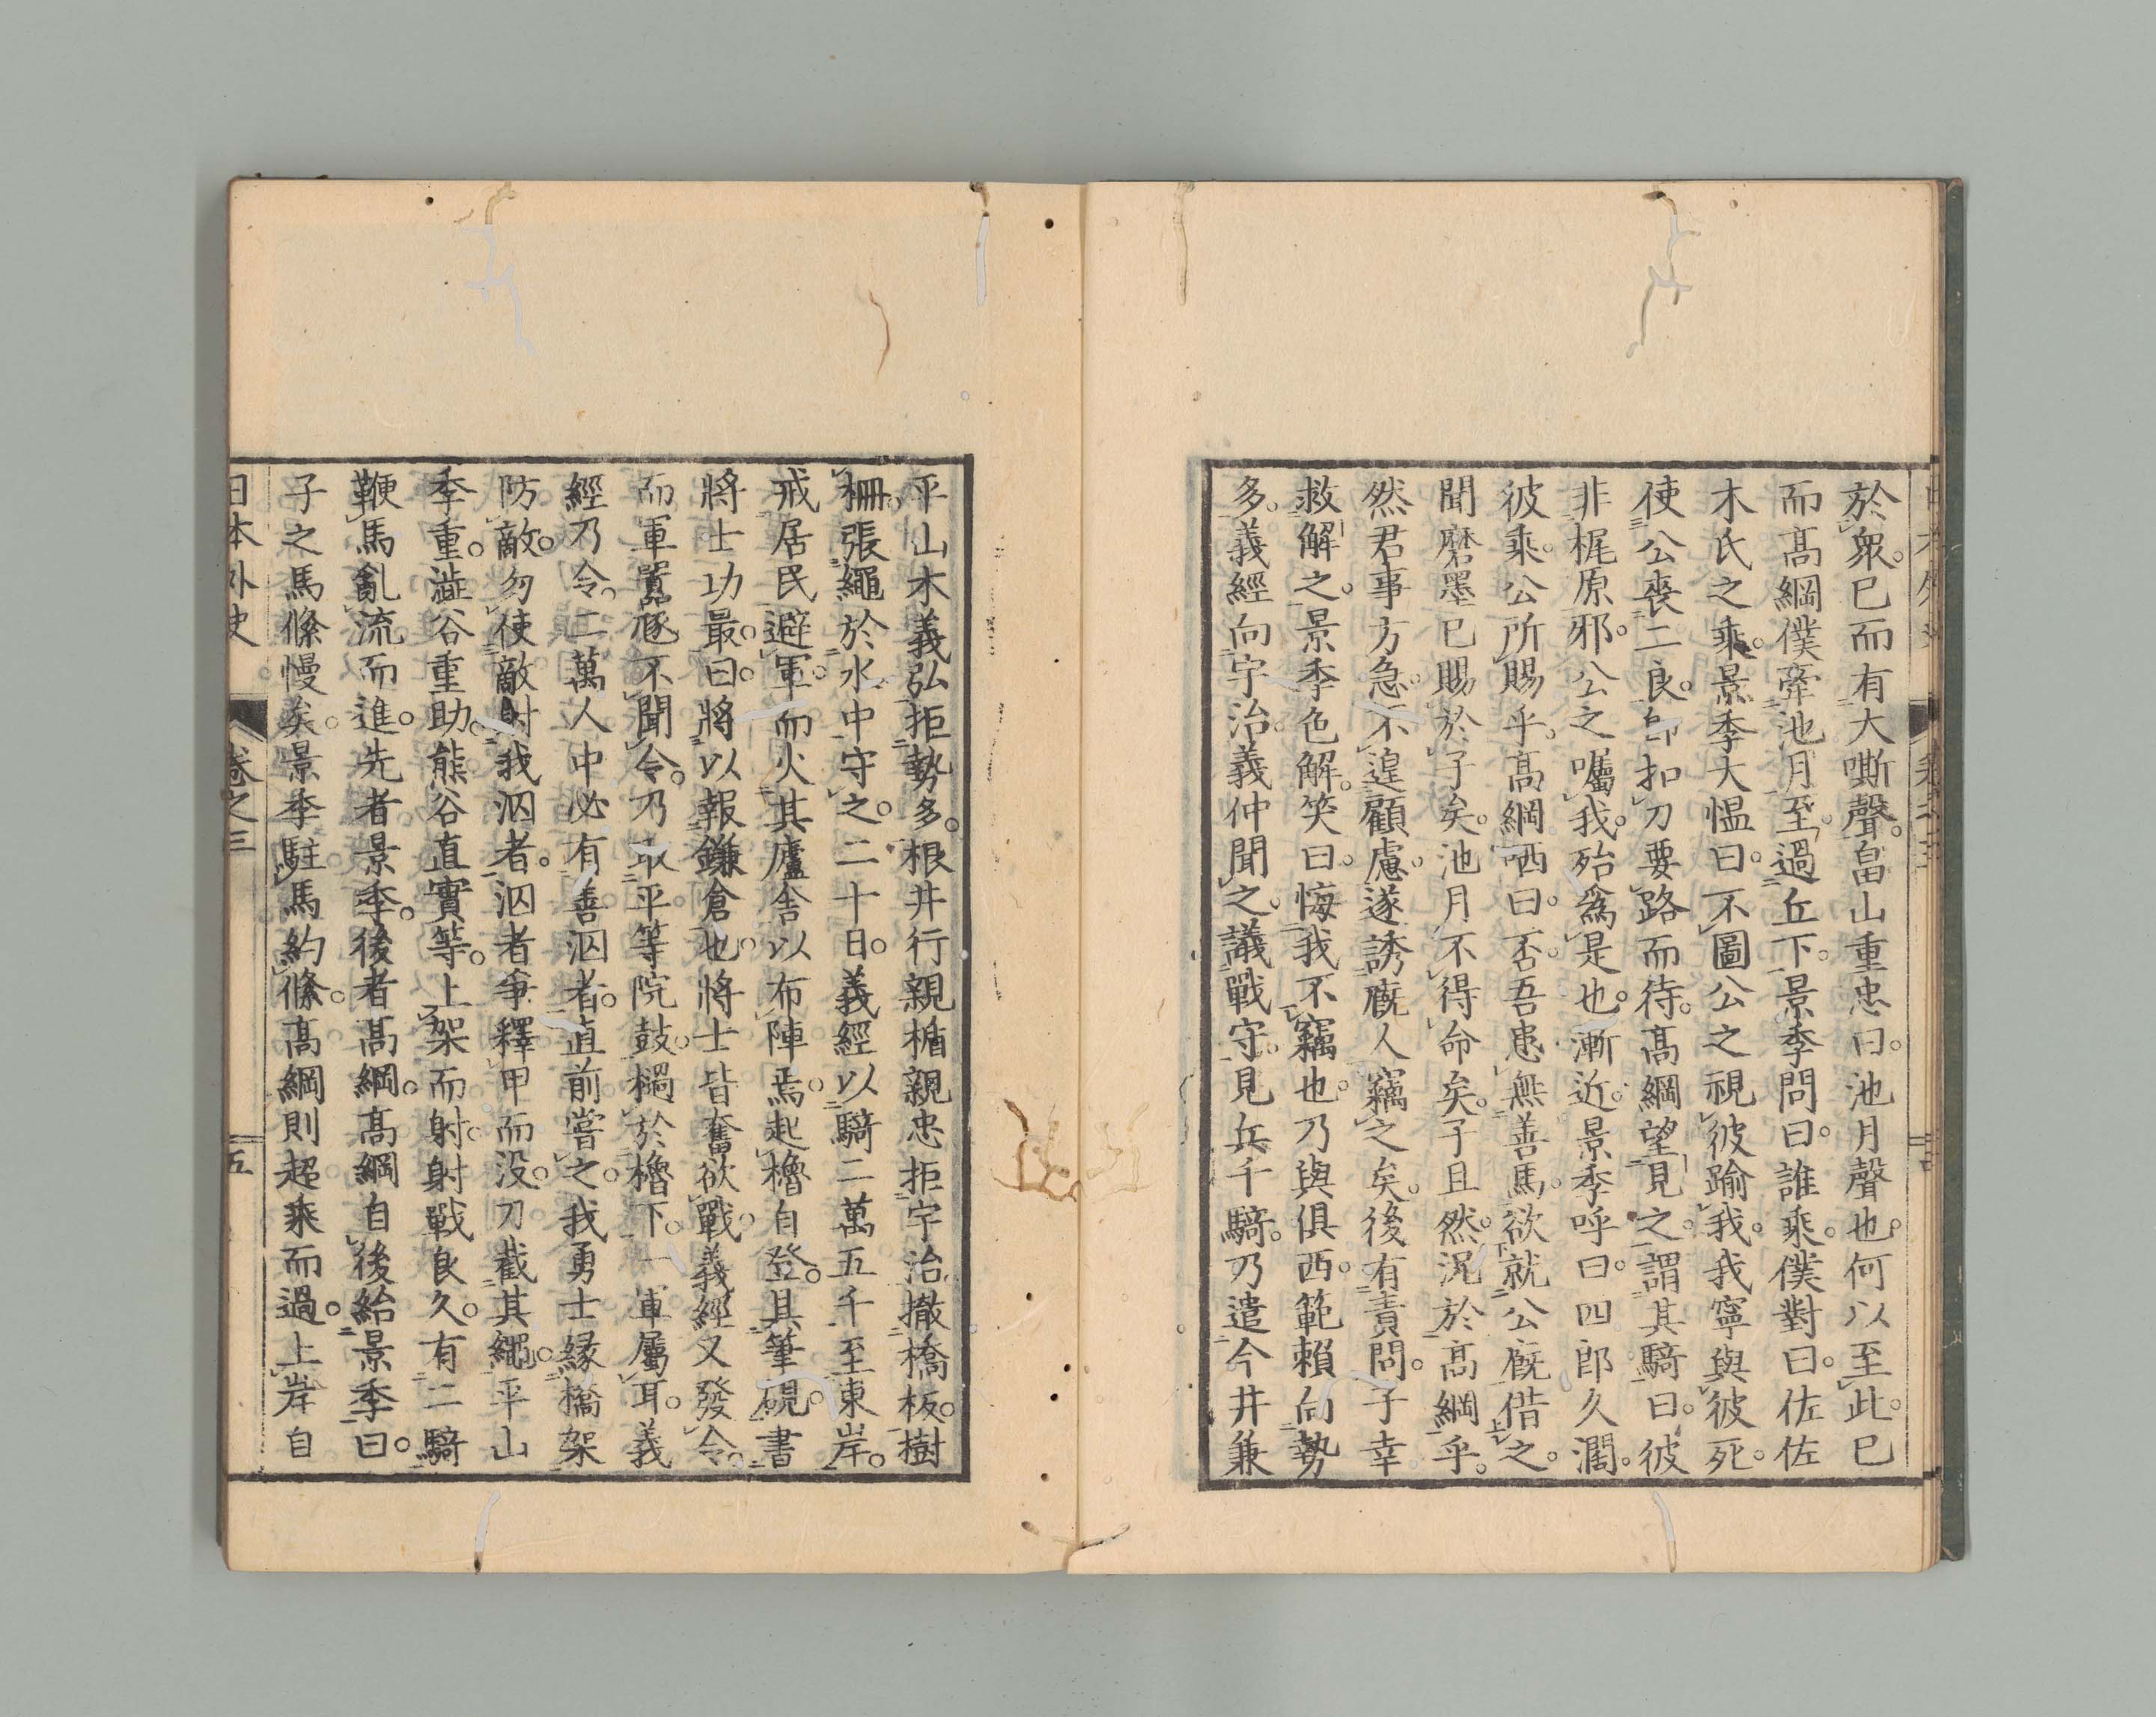 於衆。已而有大嘶聲。畠山重忠曰。池月聲也。何以至此。已
而髙綱僕牽池月至。過丘下。景季問曰。誰乘。僕對曰。佐佐
木氏之乘。景季大慍曰。不圖公之視彼踰我。我寧與彼死。
使公喪二良。卽扣刀要路而待。髙綱望見之。謂其騎曰。彼
非梶原邪。公之囑我。殆爲是也。漸近。景季呼曰。四郎久濶。
彼乘。公所賜乎。髙綱哂曰。否。吾患無善馬。欲就公廐借之。
聞磨墨已賜於子矣。池月不得命矣。子且然。況於髙綱乎。
然君事方急。不遑顧慮。遂誘廐人竊之矣。後有責問。子幸
救解之。景季色解。笑曰。悔我不竊也。乃與俱西。範賴向勢
多。義經向宇治。義仲聞之。議戰守。見兵千騎。乃遣今井兼
平山木義弘拒勢多。根井行親楯親忠拒宇治。撤橋板。樹
柵。張繩於水中守之。二十日。義經以騎二萬五千至東岸。
戒居民避軍。而火其廬舎以布陣焉。起櫓自登。具筆硯。書
將士功最。曰。將以報鎌倉也。將士皆奮欲戰。義經又發令。
而軍囂豗不聞令。乃取平等院鼓。檛於櫓下。一軍屬耳。義
經乃令。二萬人中必有善泅者。直前嘗之。我勇士縁橋架
防敵。勿使敵射我泅者。泅者爭釋甲而没。刀截其繩。平山
季重。澁谷重助。熊谷直實等。上架而射。射戰良久。有二騎
鞭馬亂流而進。先者景季。後者髙綱。髙綱自後紿景季曰。
子之馬絛慢矣。景季駐馬約絛。髙綱則超乘而過。上岸自
日本外史
卷之三
五